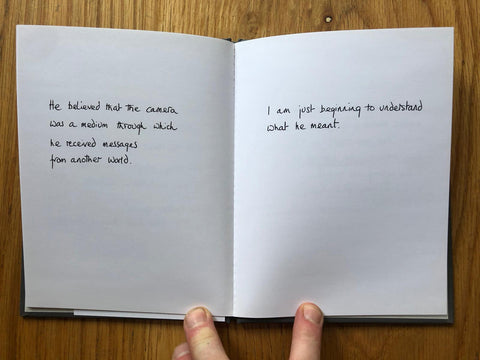 He believed that the camera
was a medium through which
he received messages
from another world.
I am just beginning to understand
what he meant.